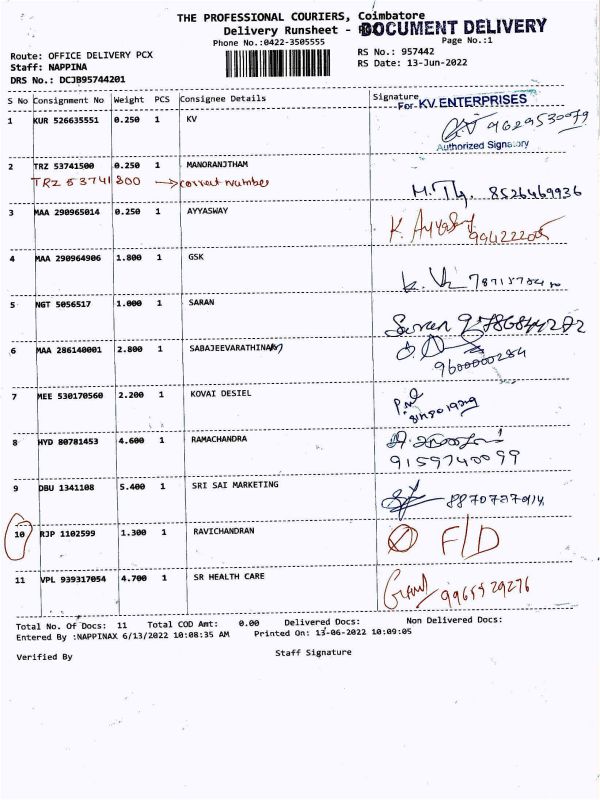 THE PROFESSIONAL COURIERS, Coimbatore
Delivery Runsheet -
DOCUMENT DELIVERY
Phone No.:0422-3505555
Page No.:1
Route: OFFICE DELIVERY PCX
RS No.: 957442
Staff: NAPPINA
RS Date: 13-Jun-2022
DRS No.: DCJB95744201
S No Consignment No Weight PCS Consignee Details Signature
For KV.ENTERPRISES
1 KUR 526635551 0.250 1 KV
9629530079
Authorized Signatory
2 TRZ 53741500 0.250 1 MANORANJTHAM
TRZ 53741800 → correct number
8526469936
3 MAA 290965014 0.250 1 AYYASWAY
4 MAA 290964906 1.800 1 GSK
5 NGT 5056517 1.000 1 SARAN
Saran
6 MAA 286140001 2.800 1 SABAJEEVARATHINAM
9600000284
7 MEE 530170560 2.200 1 KOVAI DESIEL
8 HYD 80781453 4.600 1 RAMACHANDRA
9159740099
9 DBU 1341108 5.400 1 SRI SAI MARKETING
10 RJP 1102599 1.300 1 RAVICHANDRAN F/D
11 VPL 939317054 4.700 1 SR HEALTH CARE
9965529276
Total No. Of Docs: 11 Total COD Amt: 0.00 Delivered Docs: Non Delivered Docs:
Entered By :NAPPINAX 6/13/2022 10:08:35 AM Printed On: 13-06-2022 10:09:05
Verified By Staff Signature